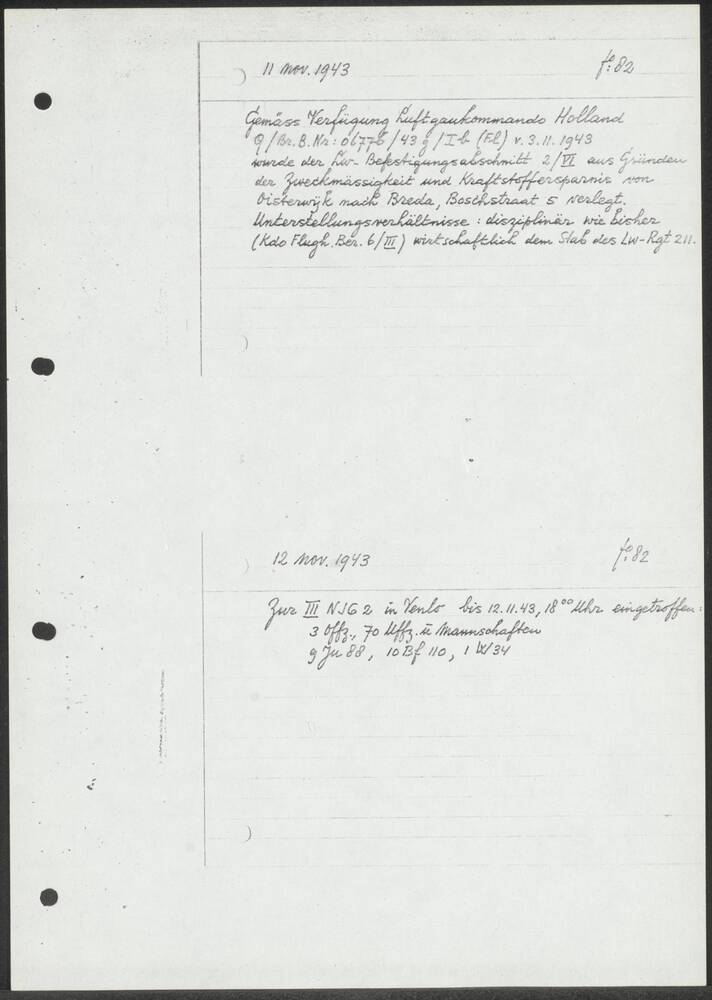 11 Nov. 1943 fo: 82
Gemäss Verfügung Luftgaukommando Holland
Q/Br.B.Nr: 06776/43 g/I b (Fl) v. 3.11.1943
wurde der Lw- Befestigungsabschnitt 2/VI aus Gründen
der Zweckmässigkeit und Kraftstoffersparnis von
Oisterwijk nach Breda, Boschstraat 5 verlegt.
Unterstellungsverhältnisse: disziplinär wie bisher
(Kdo Flugh. Ber. 6/III) wirtschaftlich dem Stab des Lw-Rgt 211.
12 Nov. 1943 fo: 82
Zur III NJG 2 in Venlo bis 12.11.43, 18⁰⁰ Uhr eingetroffen:
3 Offz., 70 Uffz. u Mannschaften
9 Ju 88, 10 Bf 110, 1 W34